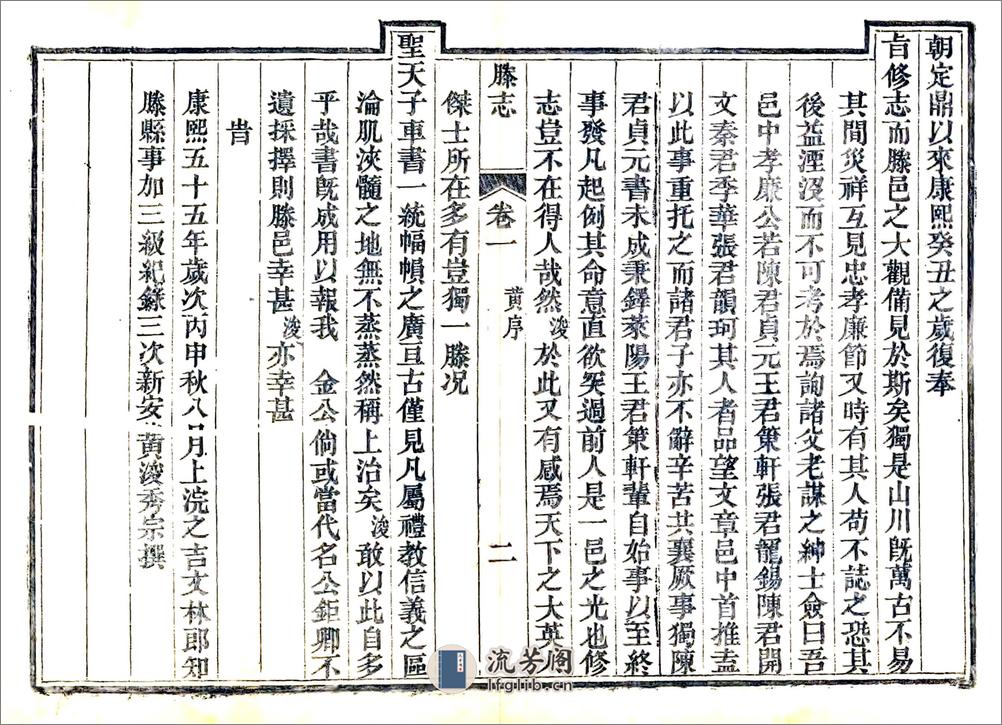 朝定鼎以來康熙癸丑之歲復奉
旨修志而滕邑之大觀備見於斯矣獨是山川旣萬古不易
其間災祥互見忠孝廉節又時有其人苟不誌之恐其
後益湮沒而不可考於焉詢諸父老謀之紳士僉曰吾
邑中孝廉公若陳君貞元王君策軒張君龍錫陳君開
文秦君季華張君韻珂其人者品望文章邑中首推盍
以此事重托之而諸君子亦不辭辛苦共襄厥事獨陳
君貞元書未成秉鐸萊陽王君策軒輩自始事以至終
事發凡起例其命意直欲突過前人是一邑之光也修
志豈不在得人哉然浚於此又有感焉天下之大英
滕志 卷一 黃序 二
傑士所在多有豈獨一滕況
聖天子車書一統幅幀之廣亘古僅見凡屬禮教信義之區
淪肌浹髓之地無不蒸蒸然稱上治矣浚敢以此自多
乎哉書旣成用以報我 金公倘或當代名公鉅卿不
遺採擇則滕邑幸甚浚亦幸甚
旹
康熙五十五年歲次丙申秋八月上浣之吉文林郎知
滕縣事加三級紀錄三次新安黃浚秀宗撰
流芳阁
lfglib.cn